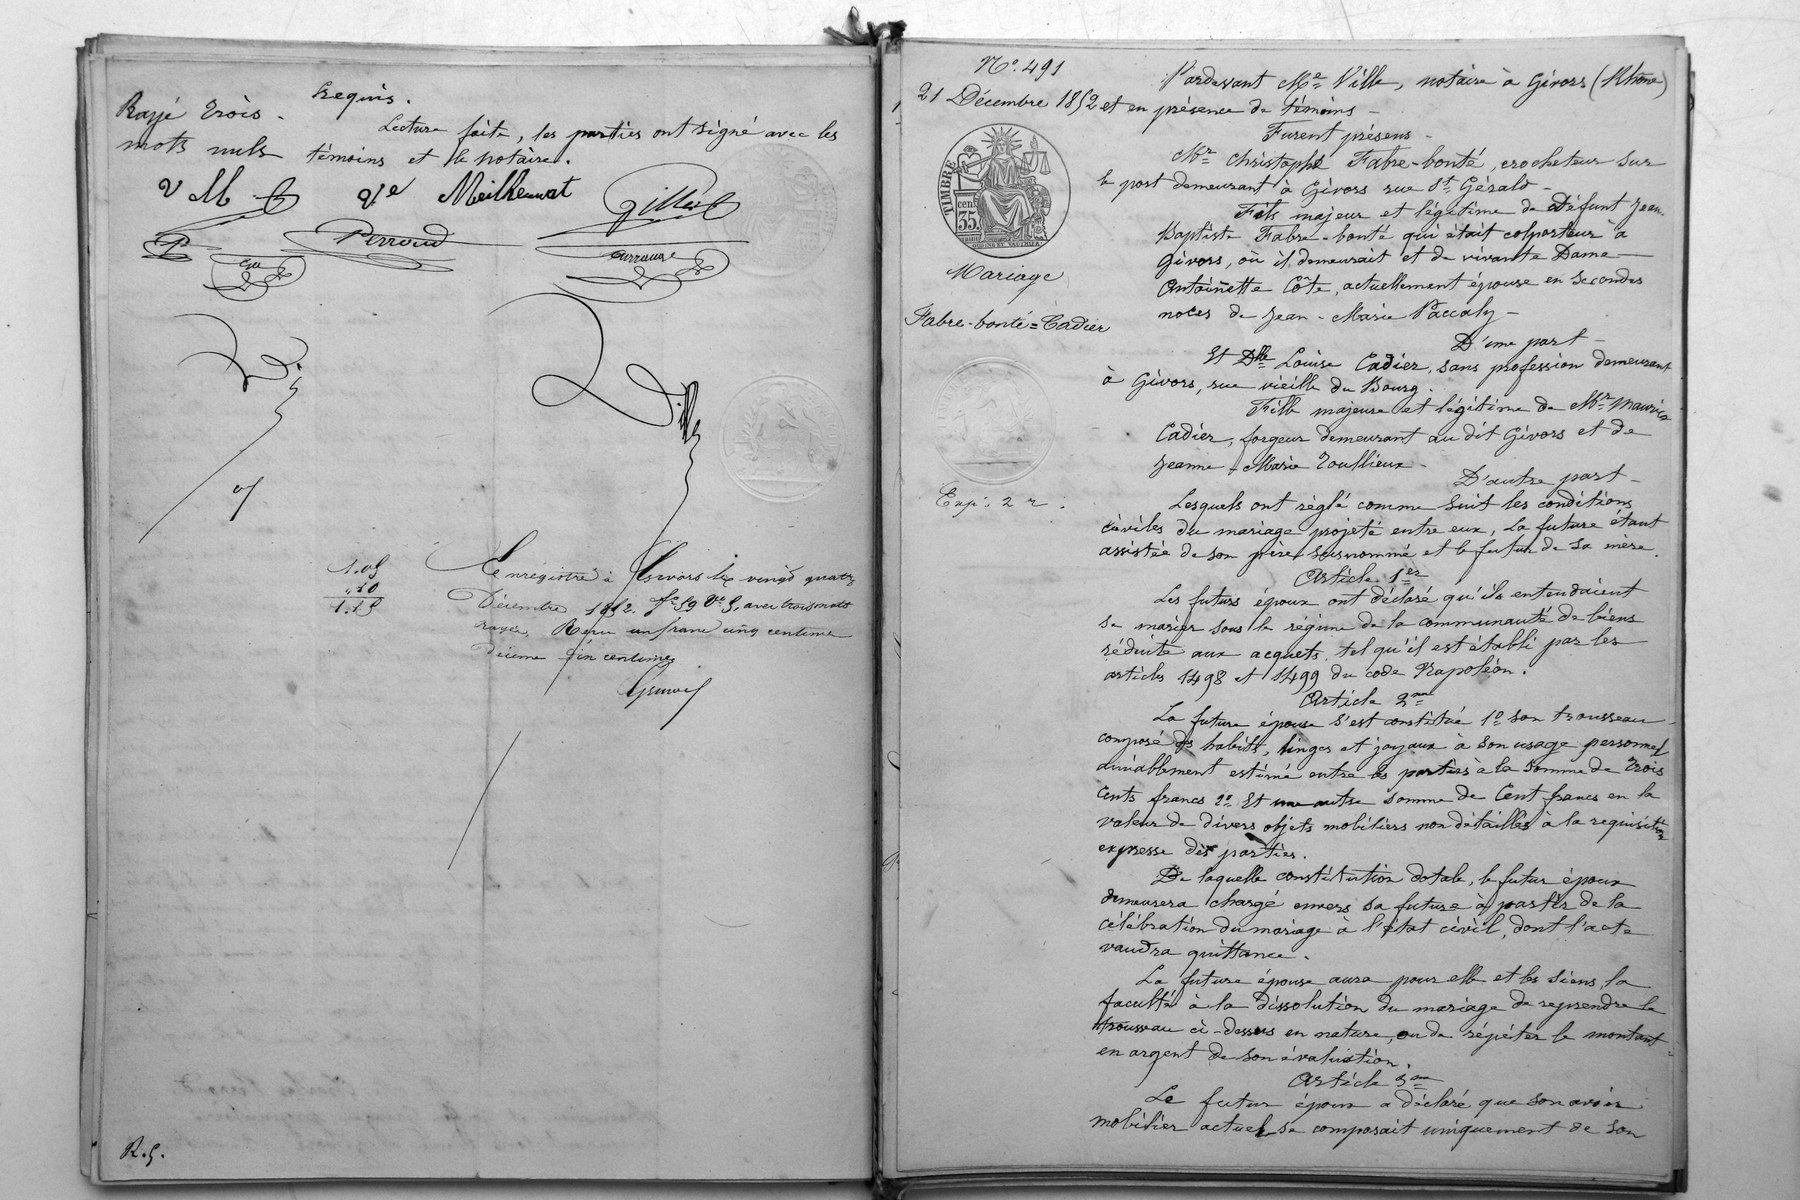 Requis.
Rayé trois
mots nuls
Lecture faite, les parties ont signé avec les
témoins et le notaire.
Ve
Perroud
1.05
.10
1.15
Enregistré à Givors le vingt quatre
Décembre 1852. fo 59 Vo 5, avec trois mots
rayés, Reçu un franc cinq centimes
Décime dix centimes
R.S.
No. 491
21 Décembre 1852
TIMBRE
cen.
35.
Mariage
Fabre-bonté=Cadier
Exp: 2 r.
Pardevant Me Ville, notaire à Givors (Rhône)
et en présence de témoins -
Furent présens -
Mr Christophe Fabre-bonté, crocheteur sur
le port demeurant à Givors rue St Gérald -
Fils majeur et légitime de Défunt Jean-
Baptiste Fabre-bonté qui était colporteur à
Givors, où il demeurait et de vivante Dame
Antoinette Côte, actuellement épouse en secondes
noces de Jean-Marie Paccaly -
D'une part -
Et Dlle Louise Cadier, sans profession demeurant
à Givors, rue vieille du Bourg.
Fille majeure et légitime de Mr Maurice
Cadier, forgeur demeurant au dit Givors et de
Jeanne-Marie Toullieux -
D'autre part -
Lesquels ont réglé comme suit les conditions
civiles du mariage projeté entre eux, la future étant
assistée de son père susnommé et le futur de sa mère.
Article 1er
Les futurs époux ont déclaré qu'ils entendaient
se marier sous le régime de la communauté de biens
réduite aux acquets, tel qu'il est établi par les
articles 1498 et 1499 du code Napoléon.
Article 2me
La future épouse s'est constitué 1o son trousseau
composé des habits, linges et joyaux à son usage personnel
amiablement estimé entre les parties à la somme de trois
cents francs 2o Et une autre somme de Cent francs en la
valeur de divers objets mobiliers non détaillés à la requisition
expresse des parties.
De laquelle constitution dotale, le futur époux
demeurera chargé envers sa future à partir de la
célébration du mariage à l'état civil, dont l'acte
vaudra quittance.
La future épouse aura pour elle et les siens, la
faculté à la dissolution du mariage de reprendre le
trousseau ci-dessus en nature, ou de répéter le montant
en argent de son évaluation.
Article 3me
Le futur époux a déclaré que son avoir
mobilier actuel se composait uniquement de son